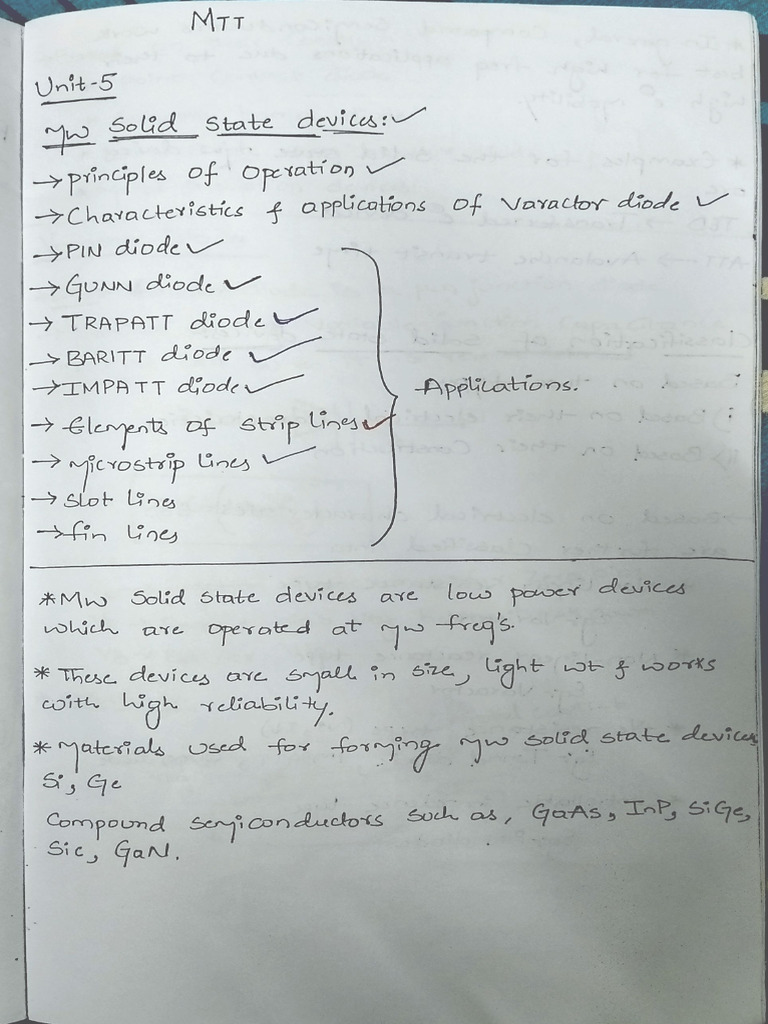 MTT
Unit-5
Mw Solid State devices:✓
→ principles of Operation ✓
→ Characteristics & applications of Varactor diode ✓
→ PIN diode ✓
→ GUNN diode ✓
→ TRAPATT diode ✓
→ BARITT diode ✓
→ IMPATT diode ✓
Applications.
→ Elements of strip lines ✓
→ Microstrip lines ✓
→ Slot lines
→ fin lines
* Mw Solid State devices are low power devices
which are operated at Mw freq's.
* These devices are small in size, light wt & works
with high reliability.
* Materials used for forming Mw solid state devices
Si, Ge
Compound semiconductors such as, GaAs, InP, SiGe,
Sic, GaN.